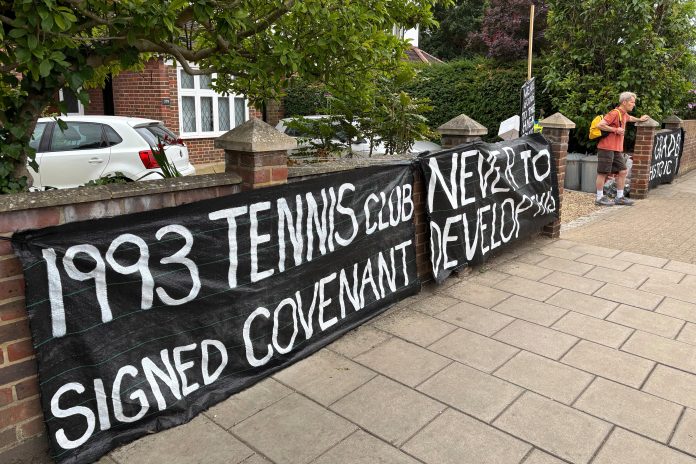 1993 TENNIS CLUB
SIGNED COVENANT
NEVER TO
DEVELOP
GRADE